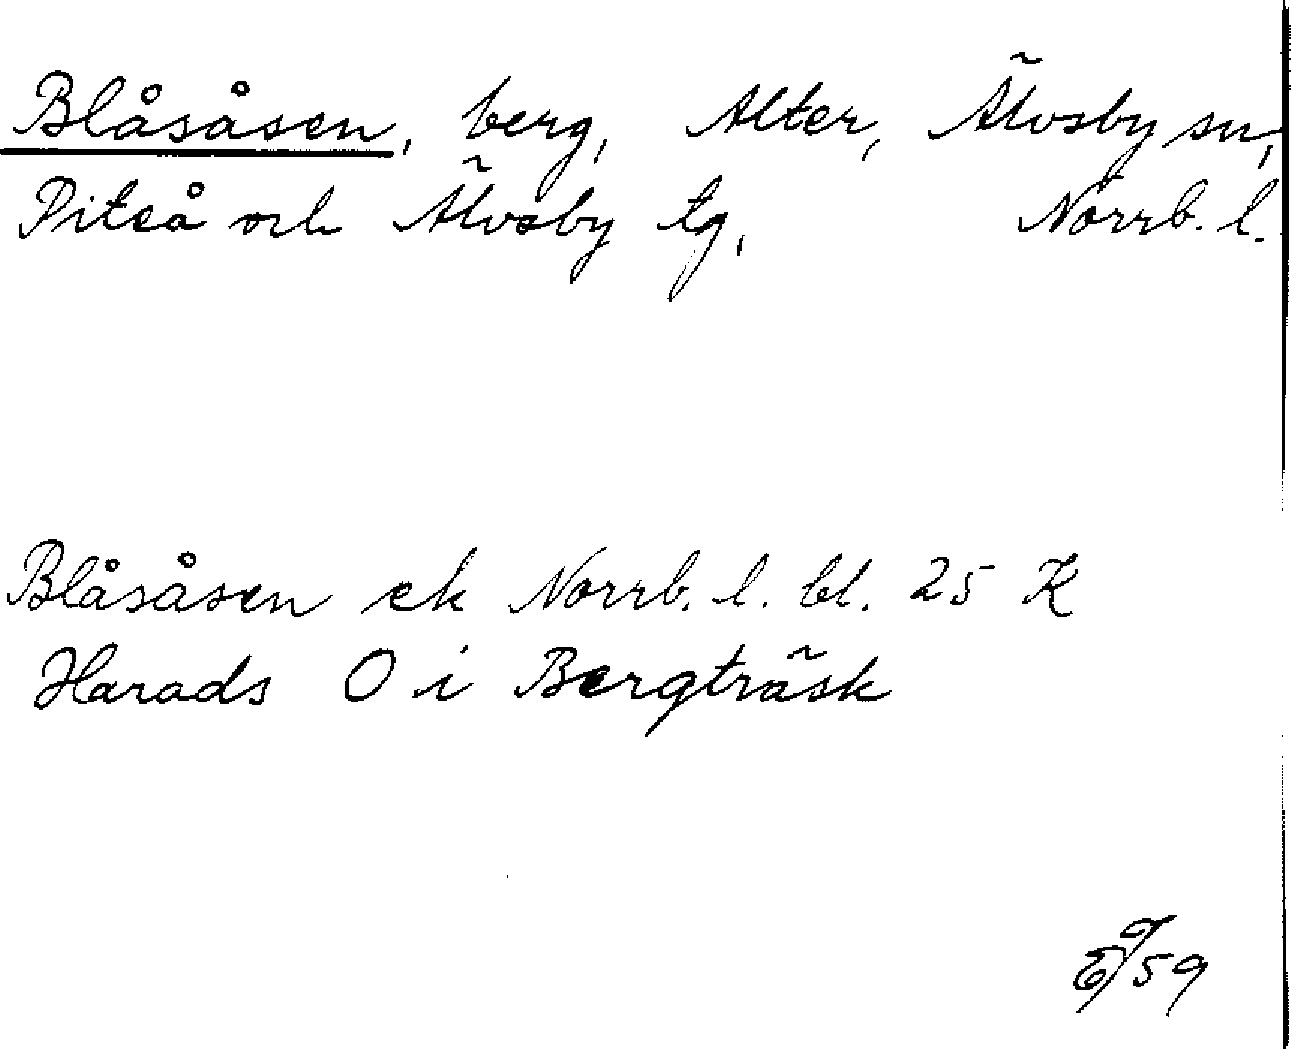 Blåsåsen, berg, Alter, Älvsby sn,
Piteå och Älvsby tg, Norrb. l.
Blåsåsen ek Norrb. l. bl. 25 K
Harads O i Bergträsk
59